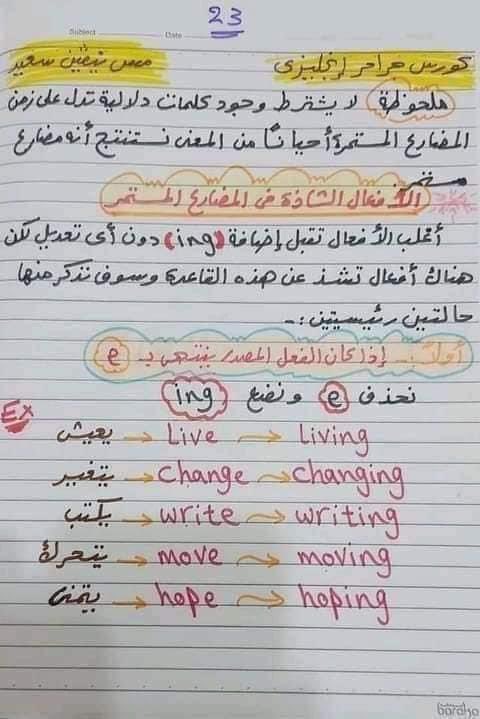 23
Subject
Date
كورس جرامر إنجليزى
مس نيڤين سعيد
ملحوظة لا يشترط وجود كلمات دلالية تدل على زمن
المضارع المستمر أحيانًا من المعنى نستنتج أنه مضارع
مستمر
الأفعال الشاذة فى المضارع المستمر
أغلب الأفعال تقبل إضافة (ing) دون أى تعديل لكن
هناك أفعال تشذ عن هذه القاعدة وسوف نذكر منها
حالتين رئيسيتين :-
أولاً :- إذا كان الفعل المصدر ينتهى بـ e
نحذف e ونضع ing
Ex
يعيش → Live → Living
يتغير → change → changing
يكتب → write → writing
يتحرك → move → moving
يتمنى → hope → hoping
baraka